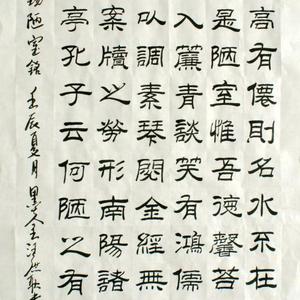 高有僊則名水不在
是陋室惟吾德馨苔
入簾青談笑有鴻儒
以調素琴閱金經無
案牘之勞形南陽諸
亭孔子云何陋之有
錫陋室銘 壬辰夏月